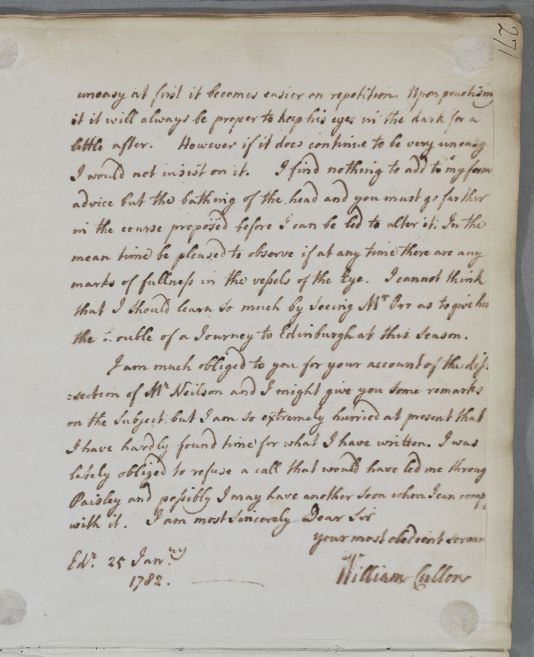 271
uneasy at first it becomes easier on repetition. Upon practising
it it will always be proper to keep his eyes in the dark for a
little after. However if it does continue to be very uneasy
I would not insist on it. I find nothing to add to my form
advice but the bathing of the head and you must go farther
in the course proposed before I can be led to alter it. In the
mean time be pleased to observe if at any time there are any
marks of fullness in the vessels of the Eye. I cannot think
that I should learn so much by seeing Mr Orr as to give him
the ouble of a Journey to Edinburgh at this season.
I am much obliged to you for your account of the dis-
:section of Mr Neilson and I might give you some remarks
on the subject but I am so extremely hurried at present that
I have hardly found time for what I have written. I was
lately obliged to refuse a call that would have led me throug
Paisley and possibly I may have another soon when I can comp
with it. I am most sincerely Dear Sir
your most obedient servan
Edr. 25 Janry
1782.
William Cullen